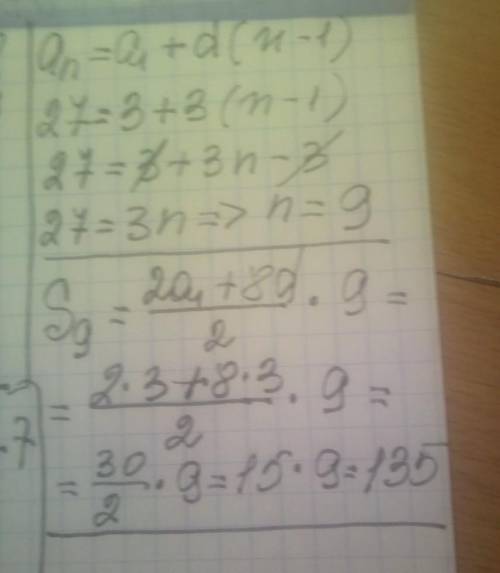 aₙ = a₁ + d(n - 1)
27 = 3 + 3(n - 1)
27 = 3 + 3n - 3
27 = 3n => n = 9
S₉ = (2a₁ + 8d)/2 · 9 =
= (2·3 + 8·3)/2 · 9 =
= 30/2 · 9 = 15 · 9 = 135
.7